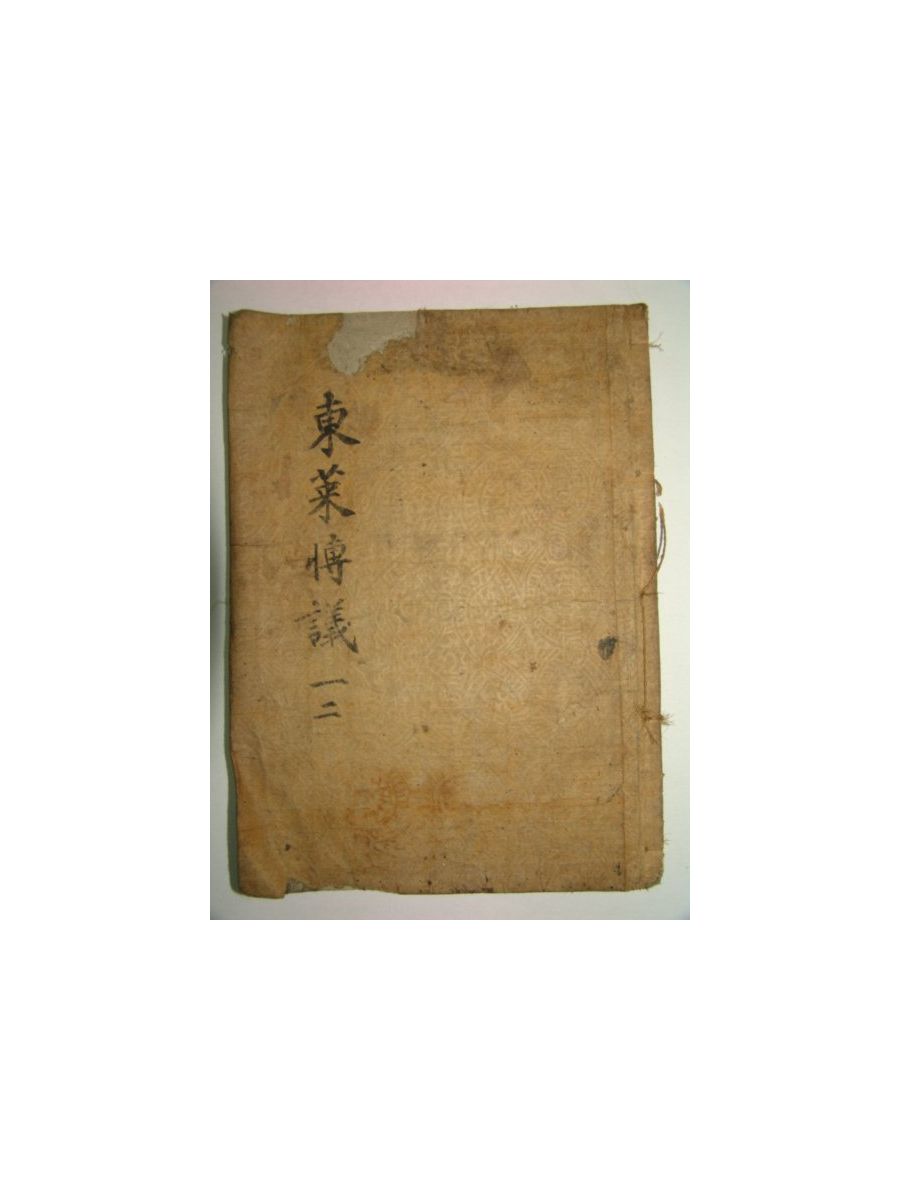 東萊博議 一二